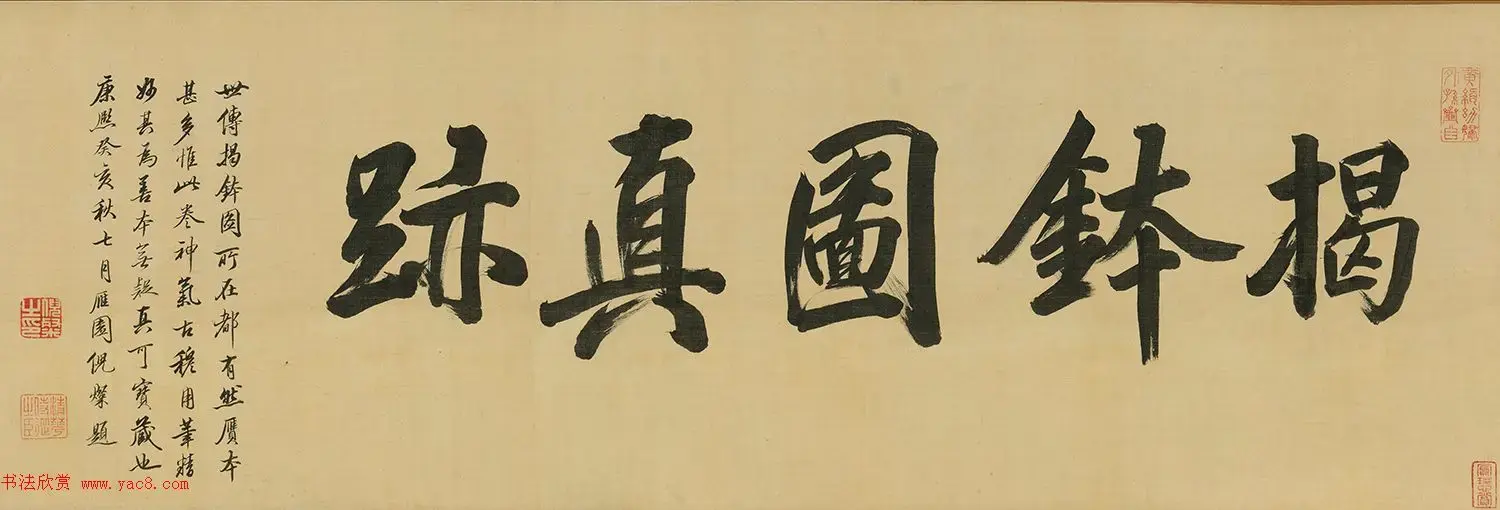 揭鉢圖真跡
世傳揭鉢圖所在都有然贋本
甚多惟此卷神氣古穆用筆精
妙其為善本無疑真可寶藏也
康熙癸亥秋七月雁園倪燦題
书法欣赏 www.yac8.com